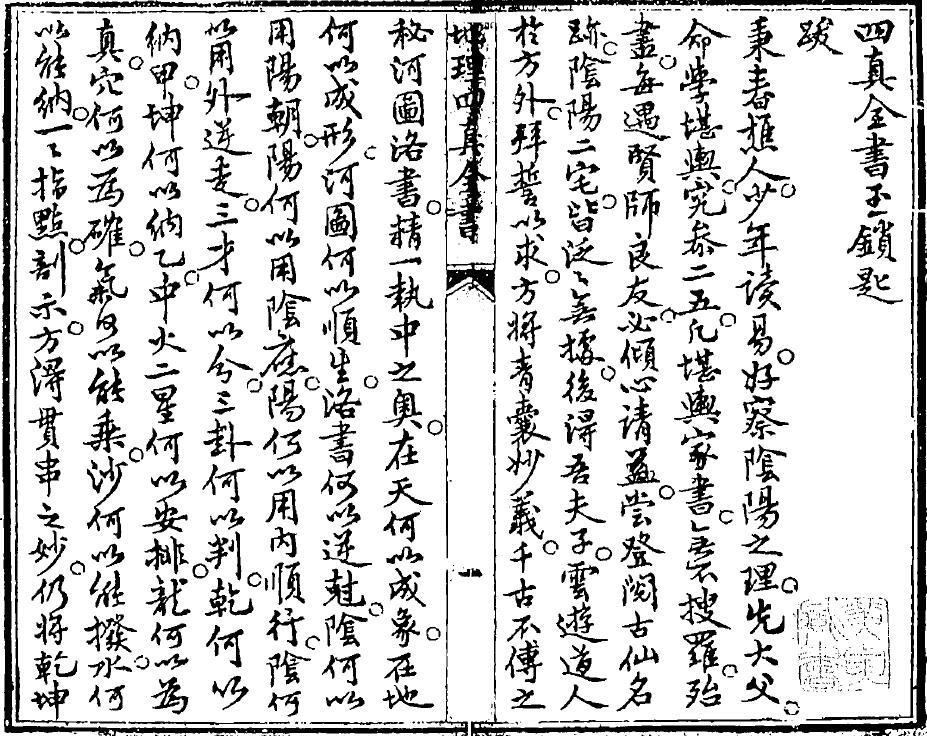 四真全書玉鎖匙
跋
秉春樵人少年讀易好察陰陽之理先大父
命學堪輿究叅二五凡堪輿家書無不搜羅殆
盡每遇賢師良友必傾心請益嘗登閱古仙名
跡陰陽二宅皆泛〻無據後得吾夫子雲遊道人
於方外拜誓以求方將青囊妙義千古不傳之
地理四真全書
一
秘河圖洛書精一執中之奧在天何以成象在地
何以成形河圖何以順生洛書何以逆尅陰何以
用陽朝陽何以用陰應陽何以用內順行陰何
以用外逆走三才何以分三卦何以判乾何以
納甲坤何以納乙中火二星何以安排龍何以為
真穴何以為確氣何以能乘沙何以能撥水何
以能納一〻指點剖示方得貫串之妙仍將乾坤